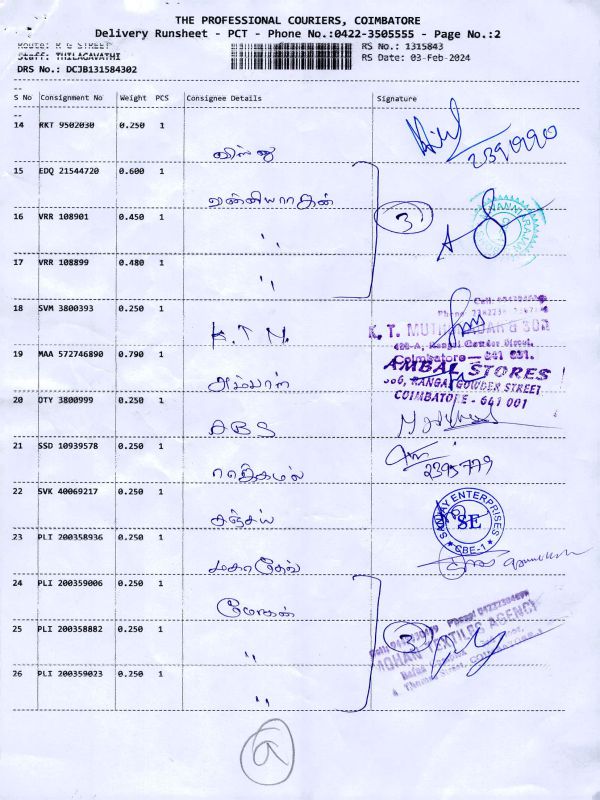 THE PROFESSIONAL COURIERS, COIMBATORE
Delivery Runsheet - PCT - Phone No.:0422-3505555 - Page No.:2
Route: R G STREET RS No.: 1315843
Staff: THILAGAVATHI RS Date: 03-Feb-2024
DRS No.: DCJB131584302
S No Consignment No Weight PCS Consignee Details Signature
14 RKT 9502030 0.250 1
2391990
15 EDQ 21544720 0.600 1
வன்னியராஜன்
16 VRR 108901 0.450 1 3
"
17 VRR 108899 0.480 1
"
18 SVM 3800393 0.250 1
K.T.M. K. T. MUTH & SON
Coimbatore - 641 001.
19 MAA 572746890 0.790 1 AMBAL STORES
அம்பாள் 306, RANGAI GOWDER STREET
20 OTY 3800999 0.250 1 COIMBATORE - 641 001
ABS
21 SSD 10939578 0.250 1
ராஜ்கமல் 2395779
22 SVK 40069217 0.250 1 SANJAY ENTERPRISES
சஞ்சய் SE
23 PLI 200358936 0.250 1 ★ CBE-1 ★
மகாதேவ்
24 PLI 200359006 0.250 1
மோகன்
25 PLI 200358882 0.250 1 3 MOHAN TEXTILES AGENCY
"
26 PLI 200359023 0.250 1
"